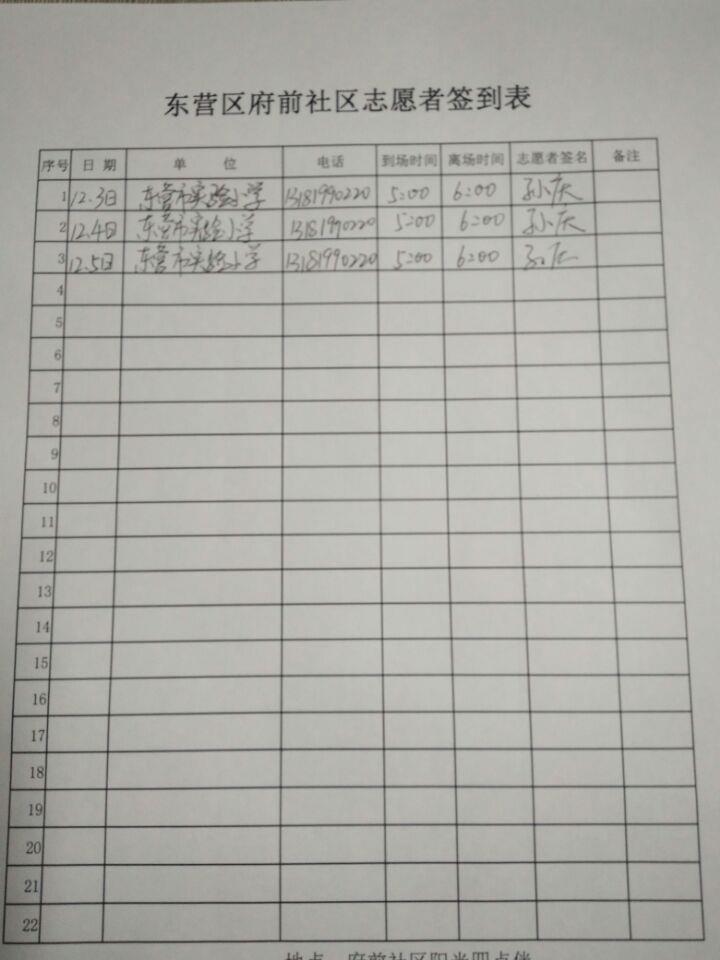 东营区府前社区志愿者签到表
序号 日期 单位 电话 到场时间 离场时间 志愿者签名 备注
1 12.3日 东营市实验小学 13181990220 5:00 6:00 孙庆
2 12.4日 东营市实验小学 13181990220 5:00 6:00 孙庆
3 12.5日 东营市实验小学 13181990220 5:00 6:00 孙庆
4
5
6
7
8
9
10
11
12
13
14
15
16
17
18
19
20
21
22
地点 府前社区阳光四点伴